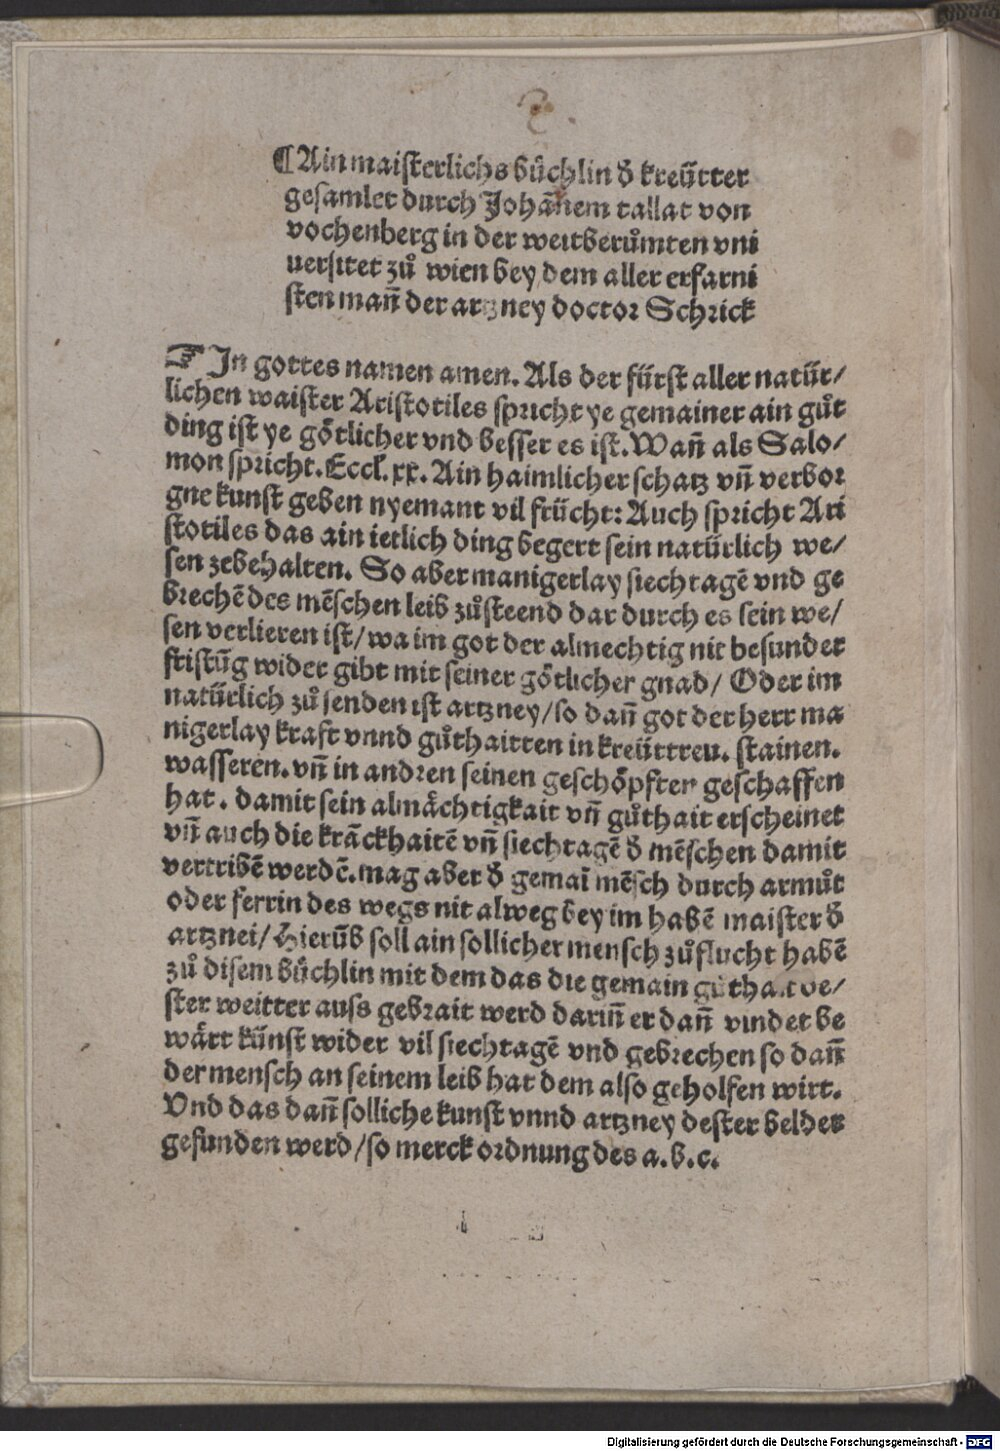 ¶Ain maisterlichs bůchlin ð kreütter
gesamlet durch Johãnem tallat von
vochenberg in der weitberůmten vni
uersitet zů wien bey dem aller erfarni
sten mañ der artzney doctor Schrick
In gottes namen amen. Als der fürst aller natür/
lichen waister Aristotiles spricht ye gemainer ain gůt
ding ist ye götlicher vnd besser es ist. Wañ als Salo/
mon spricht. Eccl. xx. Ain haimlicher schatz vñ verbor
gne kunst geben nyemant vil frücht: Auch spricht Ari
stotiles das ain ietlich ding begert sein natürlich we/
sen zebehalten. So aber manigerlay siechtagẽ vnd ge
brechẽ des mẽschen leib zůsteend dar durch es sein we/
sen verlieren ist/ wa im got der almechtig nit besunder
fristũg wider gibt mit seiner götlicher gnad/ Oder im
natürlich zů senden ist artzney/ so dañ got der herr ma
nigerlay kraft vnnd gůthaitten in kreüttreu. stainen.
wasseren. vñ in andren seinen geschöpften geschaffen
hat. damit sein almächtigkait vñ gůthait erscheinet
vñ auch die krãckhaitẽ vñ siechtagẽ ð mẽschen damit
vertribẽ werdẽ. mag aber ð gemaĩ mẽsch durch armůt
oder ferrin des wegs nit alweg bey im habẽ maister ð
artznei/ Hierũb soll ain sollicher mensch zůflucht habẽ
zů disem bůchlin mit dem das die gemain gůthait de/
ster weitter auss gebrait werd dariñ er dañ vindet be
wärt künst wider vil siechtagẽ vnd gebrechen so dañ
der mensch an seinem leib hat dem also geholfen wirt.
Vnd das dañ solliche kunst vnnd artzney dester belder
gefunden werd/ so merck ordnung des a.b.c.
Digitalisierung gefördert durch die Deutsche Forschungsgemeinschaft - DFG